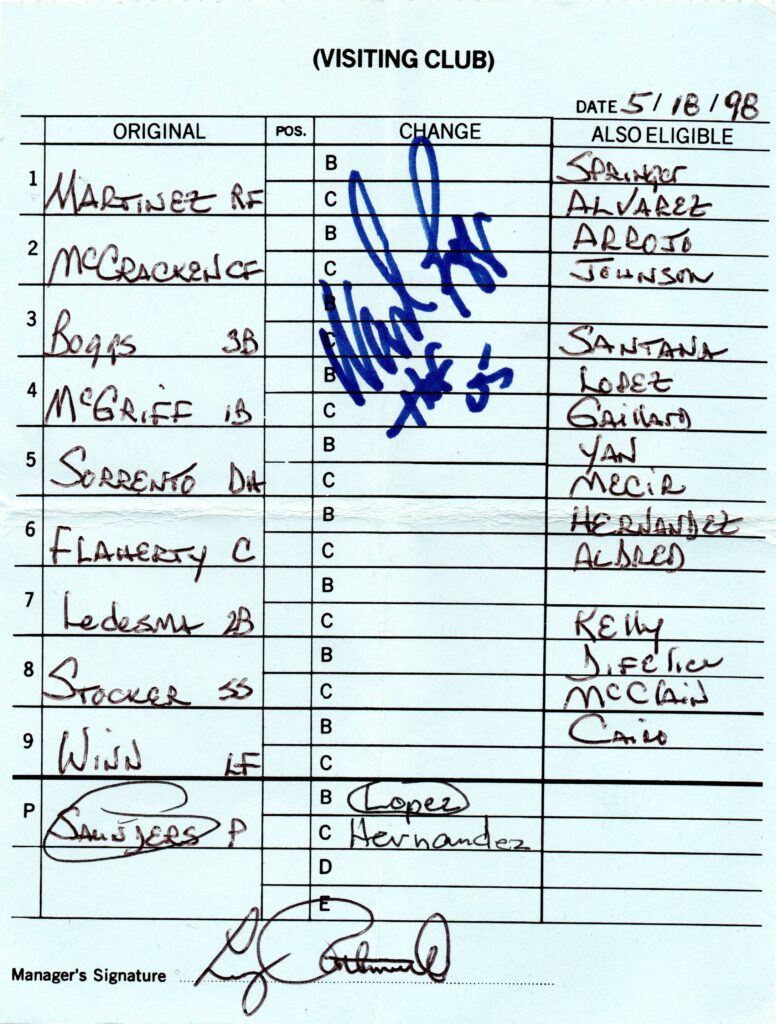 (VISITING CLUB)
DATE 5/18/98
ORIGINAL POS. CHANGE ALSO ELIGIBLE
1 MARTINEZ RF B SPRINGER
C ALVAREZ
2 McCRACKEN CF B ARROJO
C JOHNSON
3 Boggs 3B B
C SANTANA
4 McGRIFF 1B B LOPEZ
C GAILLARD
5 SORRENTO DH B YAN
C MECIR
6 FLAHERTY C B HERNANDEZ
C ALDRED
7 Ledesma 2B B
C KElly
8 STOCKER SS B DiFelice
C McClain
9 WINN LF B CAIRO
C
P SAUNDERS P B Lopez
C Hernandez
D
E
Wade Boggs
Manager's Signature Larry Rothschild